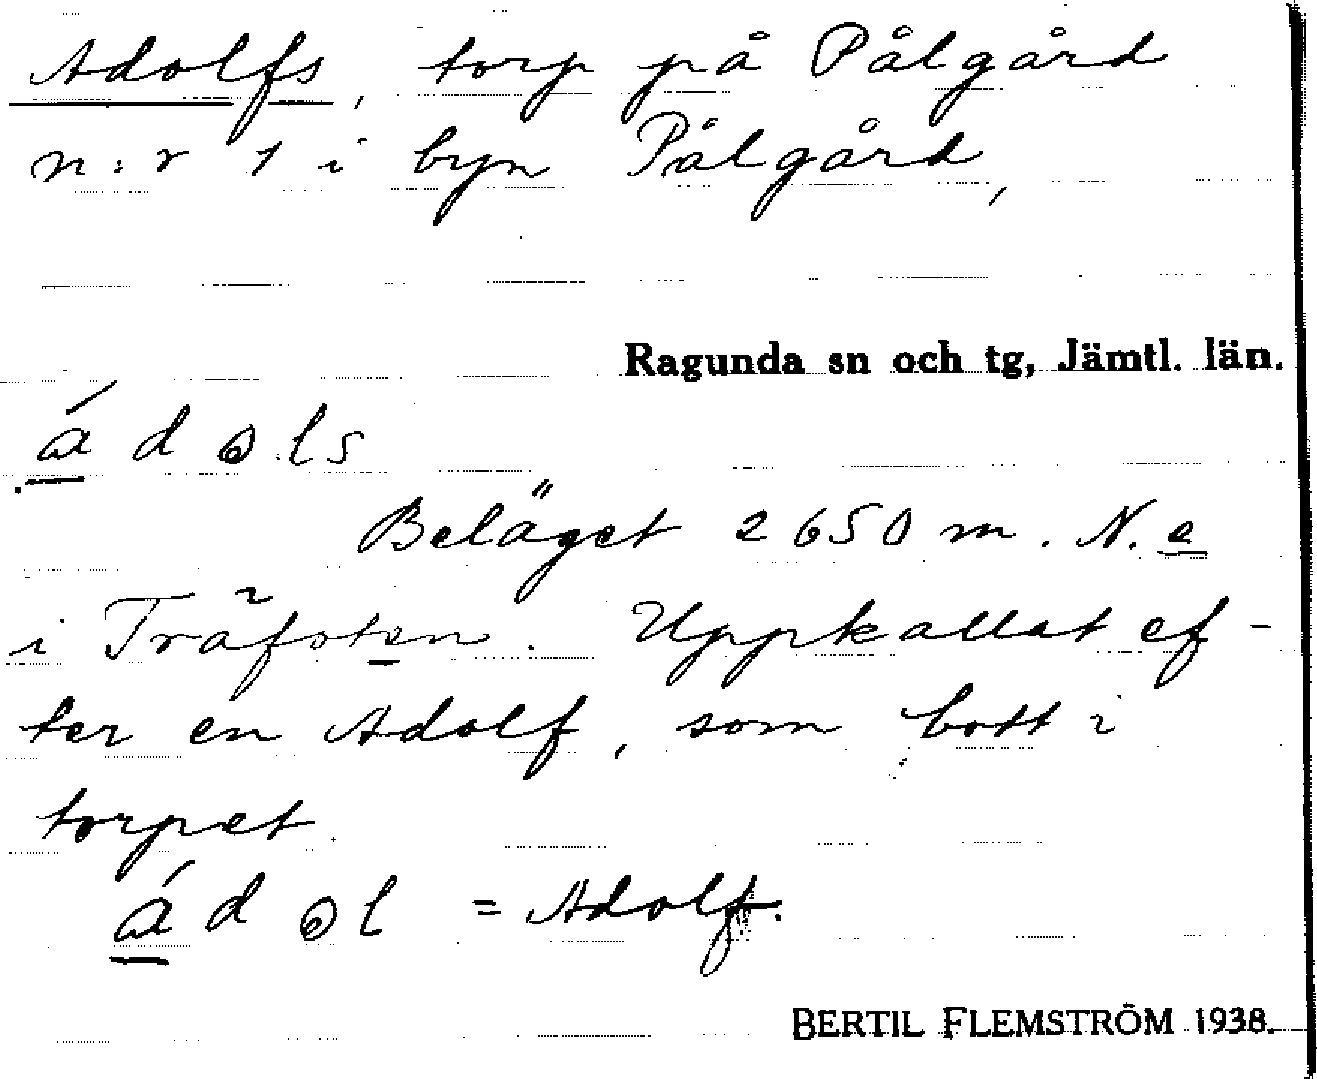 Adolfs, torp på Pålgård
n:r 1 i byn Pålgård,
Ragunda sn och tg, Jämtl. län.
á d ɷ l s
Beläget 2650 m. N. e
i Träfsten. Uppkallat ef-
ter en Adolf, som bott i
torpet.
á d ɷ l = Adolf.
BERTIL FLEMSTRÖM 1938.